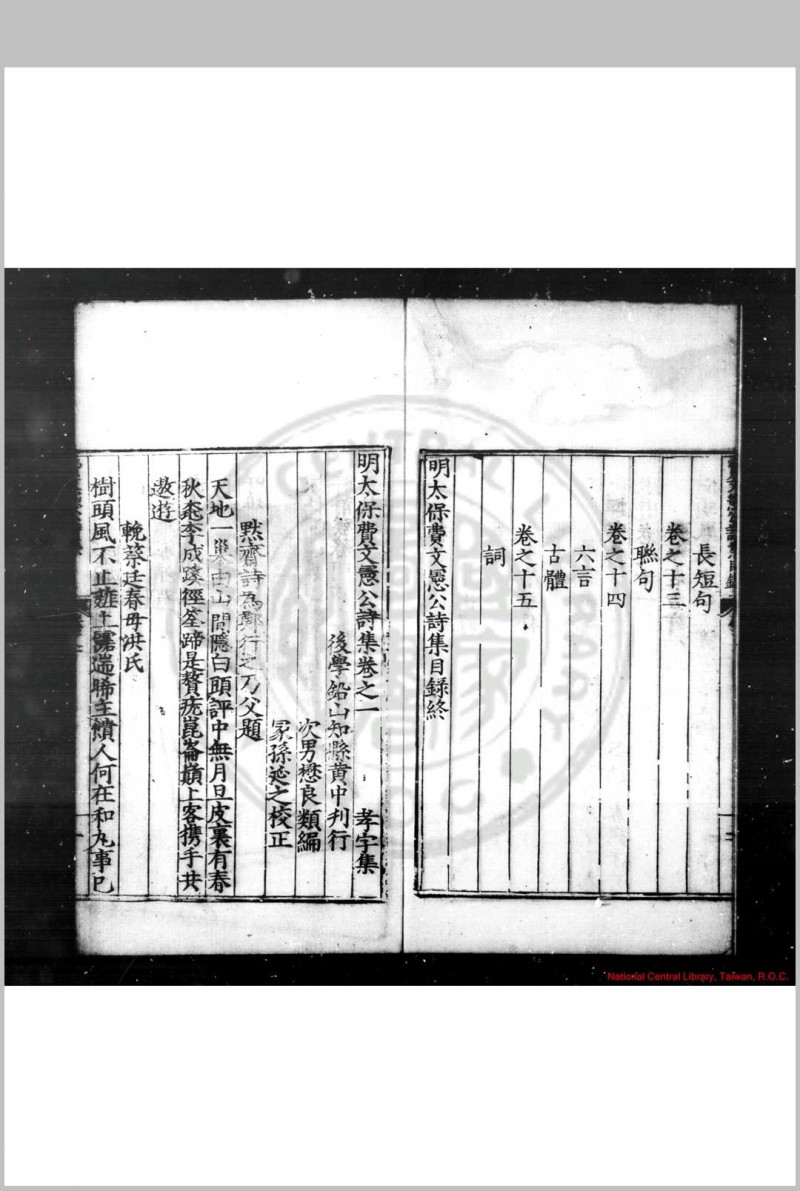 長短句
卷之十三
聯句
卷之十四
六言
古體
卷之十五
詞
明太保費文憲公詩集目録終
明太保費文憲公詩集卷之一 孝字集
後學鉛山知縣黄中刊行
次男懋良類編
冢孫延之校正
默齋詩為鄭行之乃父題
天地一巢由山間隱白頭評中無月旦皮裏有春
秋桃李成蹊徑筌蹄是贅疣崑崙巔上客携手共
遨遊
輓蔡廷春母洪氏
樹頭風不止薤上露耑晞主饋人何在和丸事已
National Central Library, Taiwan, R.O.C.